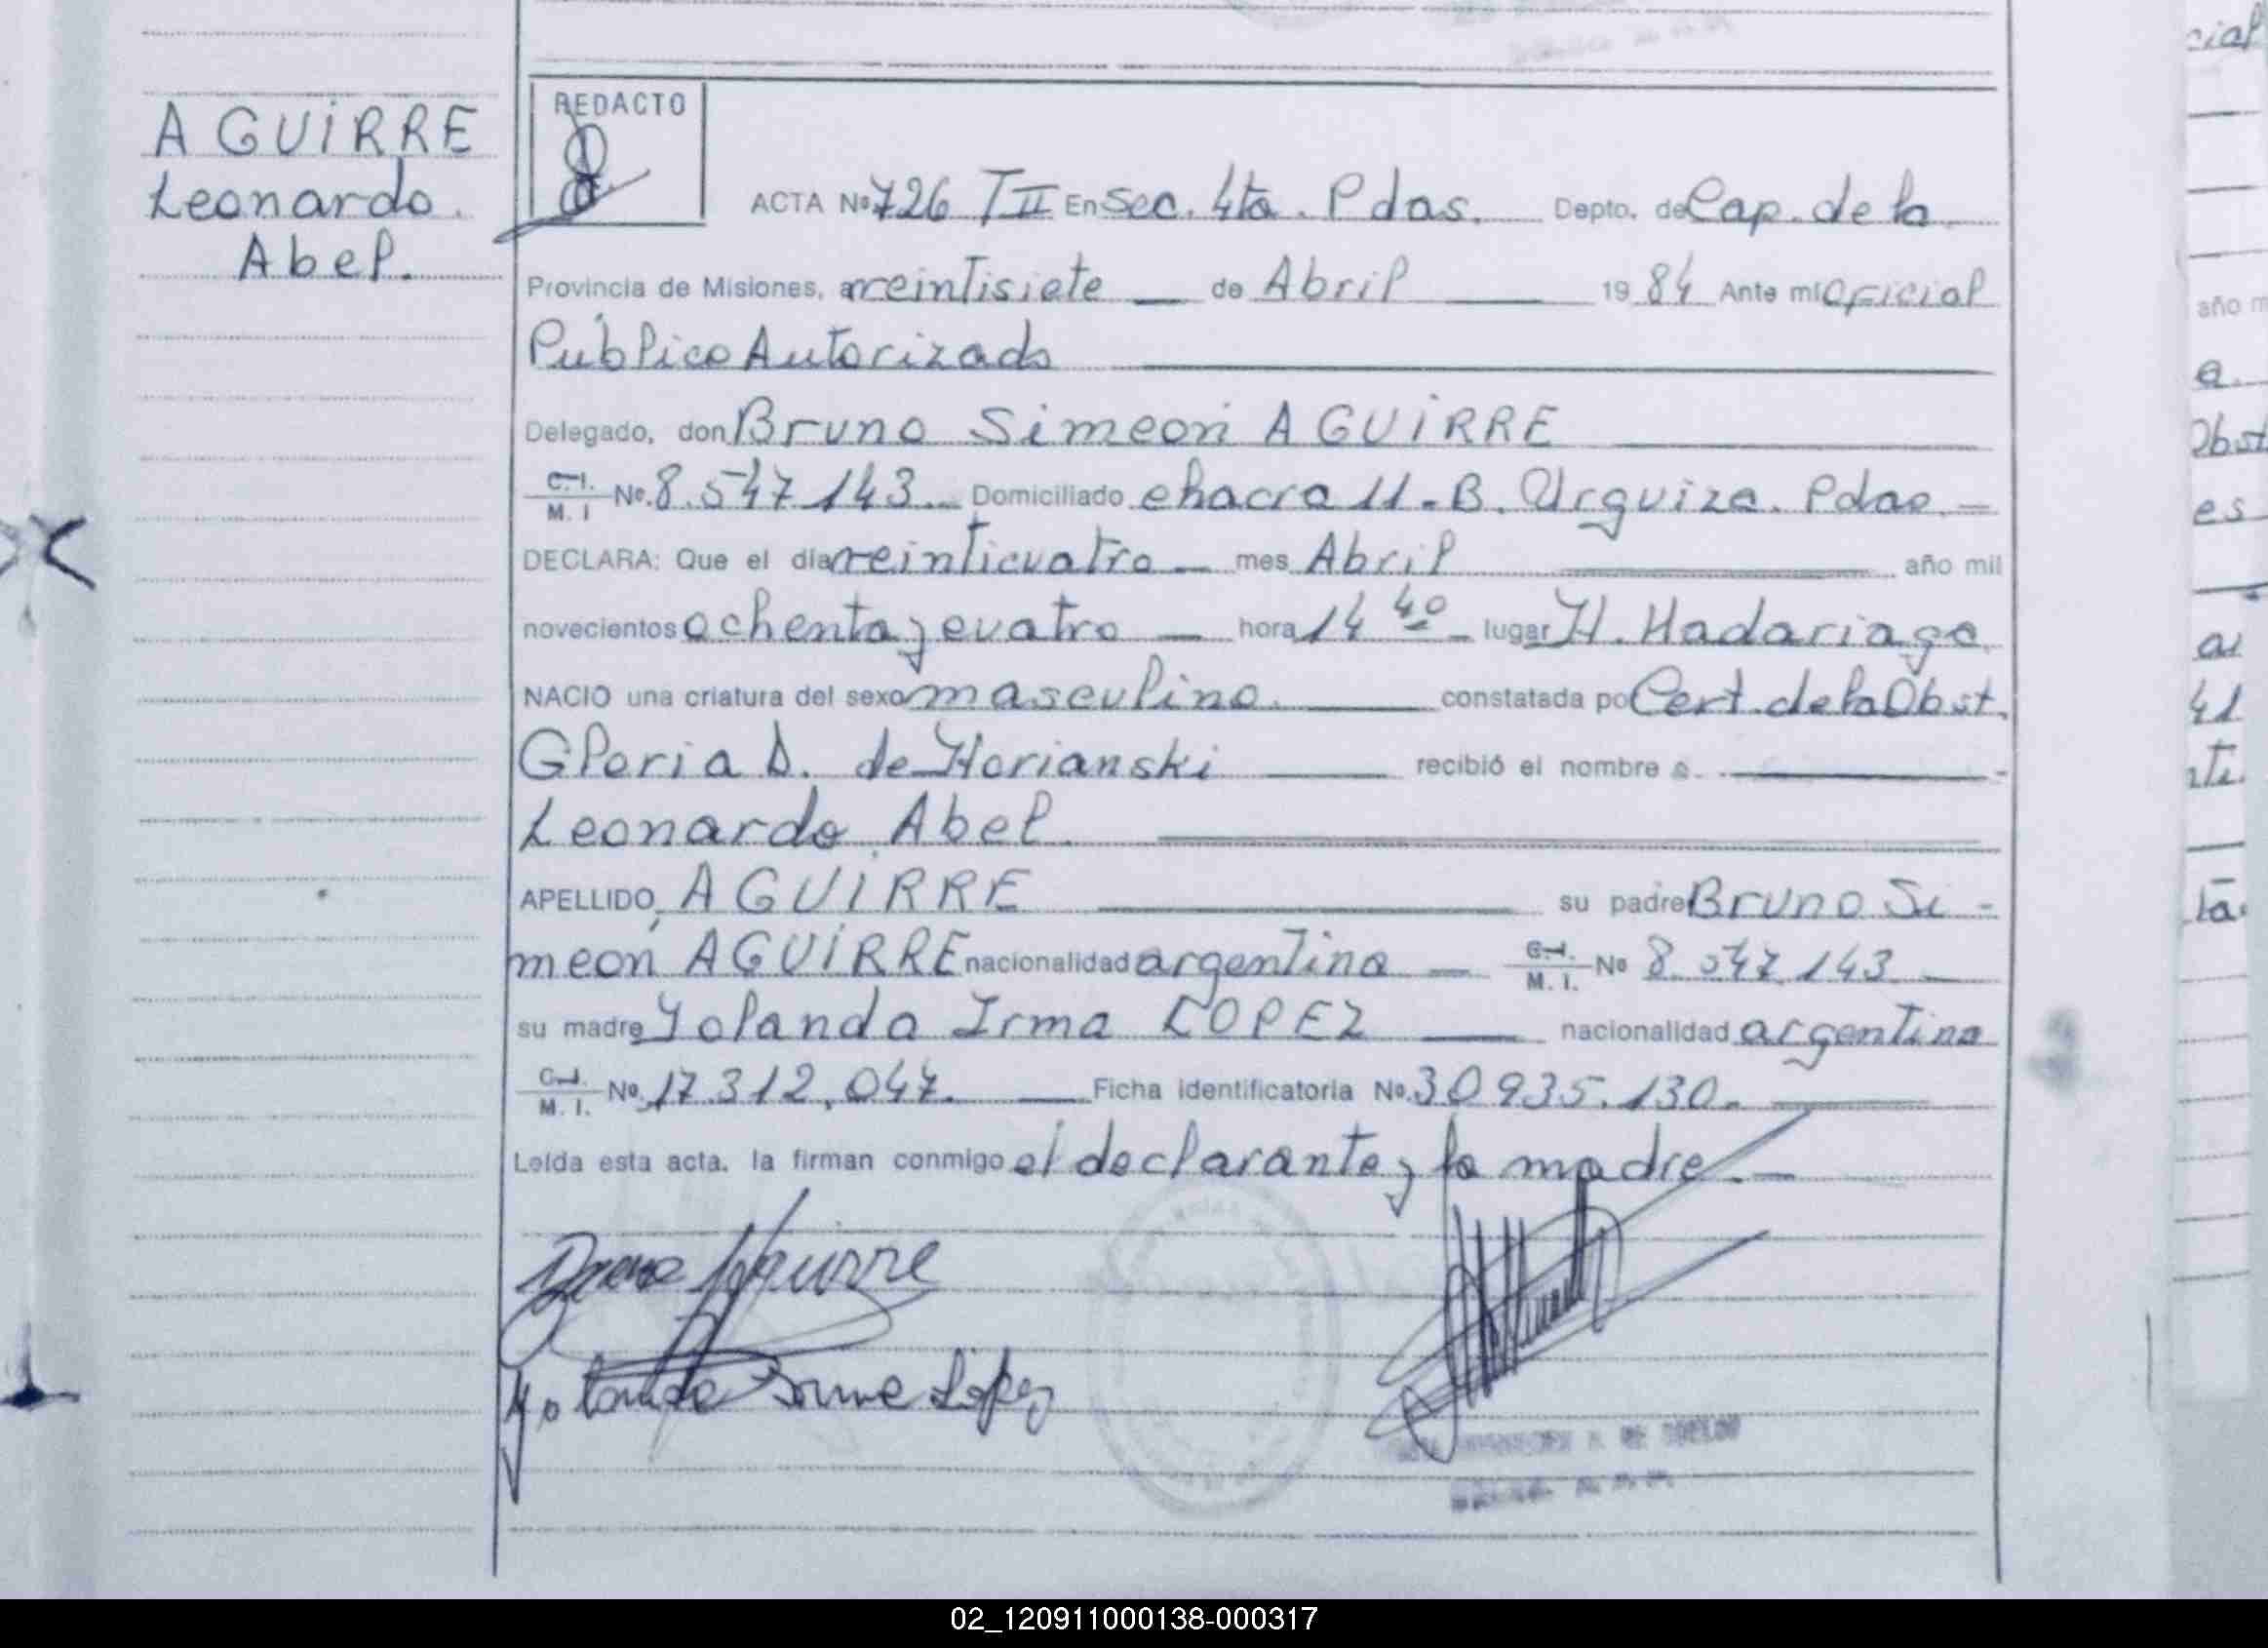 AGUIRRE
Leonardo.
Abel.
REDACTO
ACTA Nº 726 TII En Sec. 4ta. Pdas. Depto. de Cap. de la
Provincia de Misiones, a veintisiete de Abril 19 84 Ante mi Oficial
Público Autorizado
Delegado, don Bruno Simeón AGUIRRE
C.I. M. I Nº. 8.547.143. Domiciliado chacra 11-B. Urquiza. Pdas.
DECLARA: Que el día veinticuatro mes Abril año mil
novecientos ochenta y cuatro hora 14 40 lugar H. Madariaga.
NACIO una criatura del sexo masculino. constatada po Cert. de la Obst.
Gloria D. de Horianski recibió el nombre
Leonardo Abel.
APELLIDO, AGUIRRE su padre Bruno Si-
meón AGUIRRE nacionalidad argentina C.I. M. I. Nº 8.547.143.
su madre Yolanda Irma LOPEZ nacionalidad argentina
C.I. M. I. Nº. 17.312.047. Ficha identificatoria Nº. 30935.130.
Leída esta acta, la firman conmigo el declarante y la madre.
Bruno Aguirre
Yolanda Irma López
cial
año m
a.
Obst
es
41
ta
02_120911000138-000317